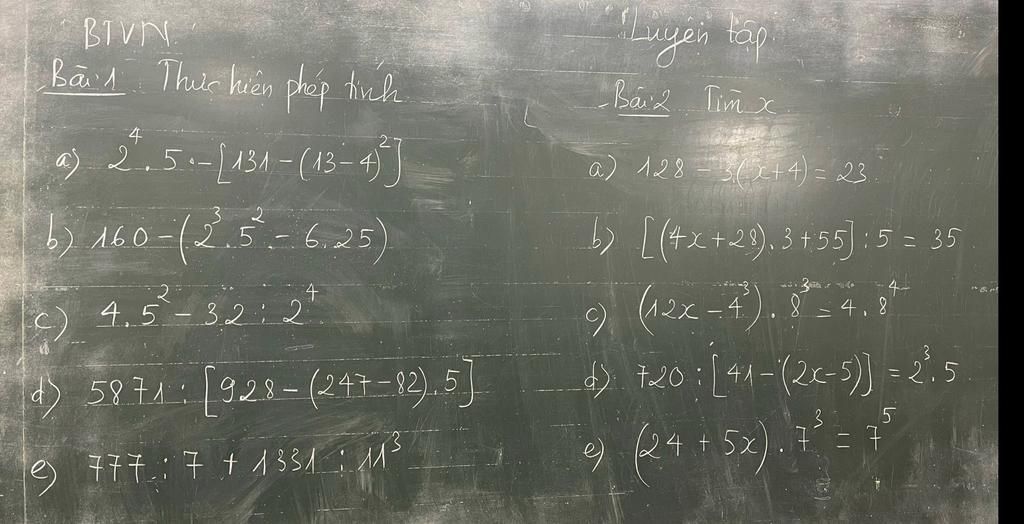 BTVN
Bài 1 Thực hiện phép tính
a) 2⁴.5 - [131 - (13 - 4)²]
b) 160 - (2³.5² - 6.25)
c) 4.5² - 32 : 2⁴
d) 5871 : [928 - (247 - 82).5]
e) 777 : 7 + 1331 : 11³
Luyện tập
Bài 2 Tìm x
a) 128 - 3(x+4) = 23
b) [(4x+28).3+55] : 5 = 35
c) (12x - 4³).8³ = 4.8⁴
d) 720 : [41 - (2x-5)] = 2³.5
e) (24 + 5x).7³ = 7⁵